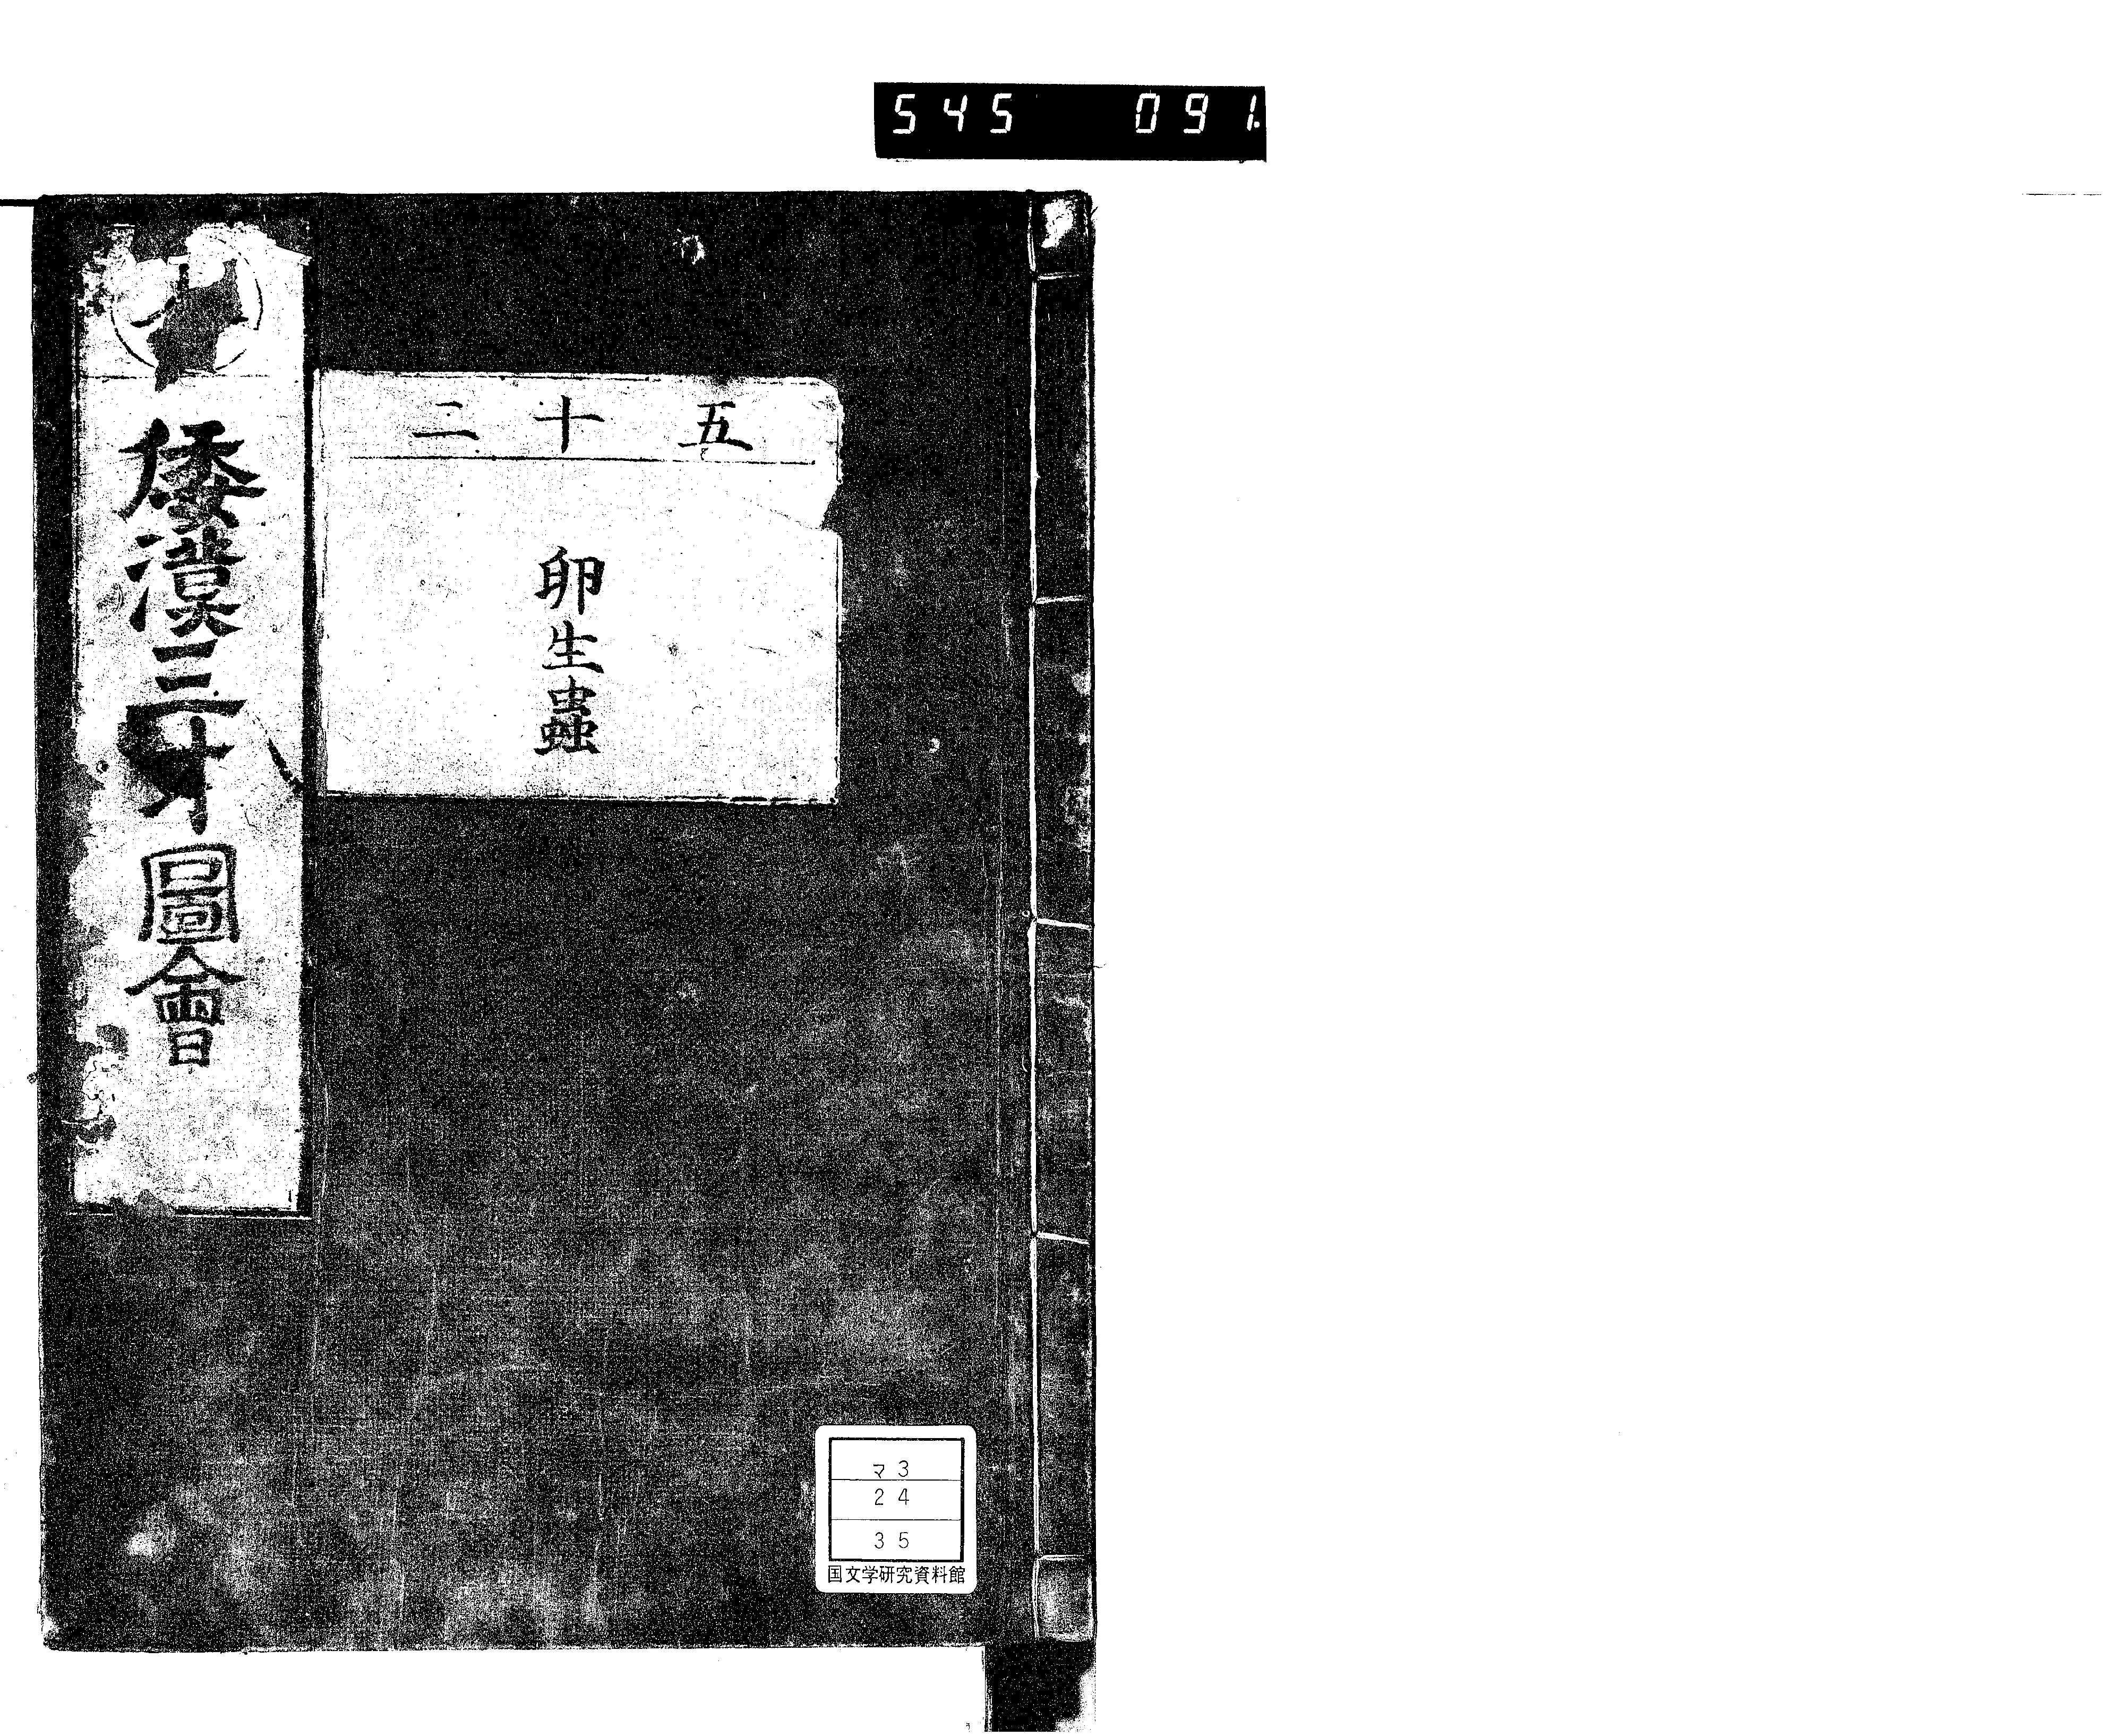 545 091.
五十二
卵生蟲
倭漢三才圖會
マ3
24
35
国文学研究資料館